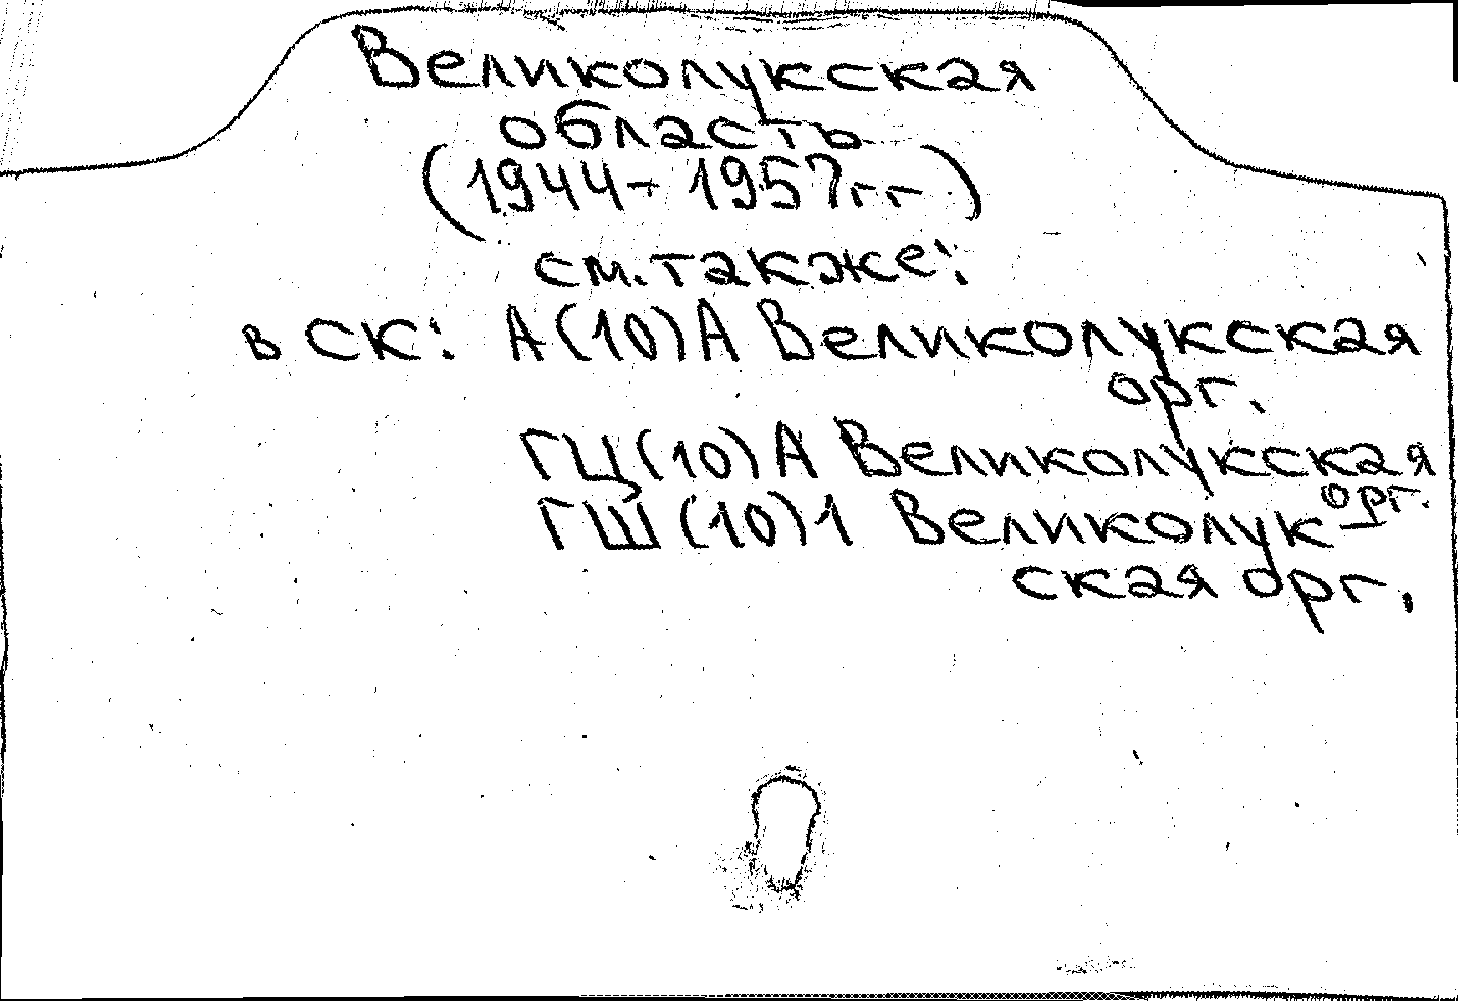 Великолукская
область
(1944-1957гг)
см.также:
в СК: А(10)А Великолукская
орг.
ГЦ(10)А Великолукская
орг.
ГШ(10)1 Великолук-
ская орг.